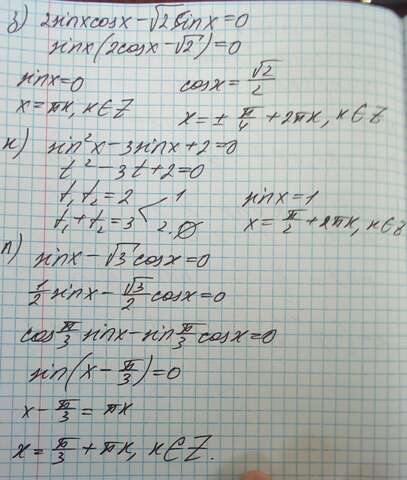 з) 2sinxcosx-√2sinx=0
sinx(2cosx-√2)=0
sinx=0 cosx=√2/2
x=πк, к∈Z x=±π/4+2πк, к∈Z
н) sin²x-3sinx+2=0
t²-3t+2=0
t₁t₂=2 1 sinx=1
t₁+t₂=3 2.∅ x=π/2+2πк, к∈Z
п) sinx-√3cosx=0
1/2sinx-√3/2cosx=0
cosπ/3sinx-sinπ/3cosx=0
sin(x-π/3)=0
x-π/3=πк
x=π/3+πк, к∈Z.